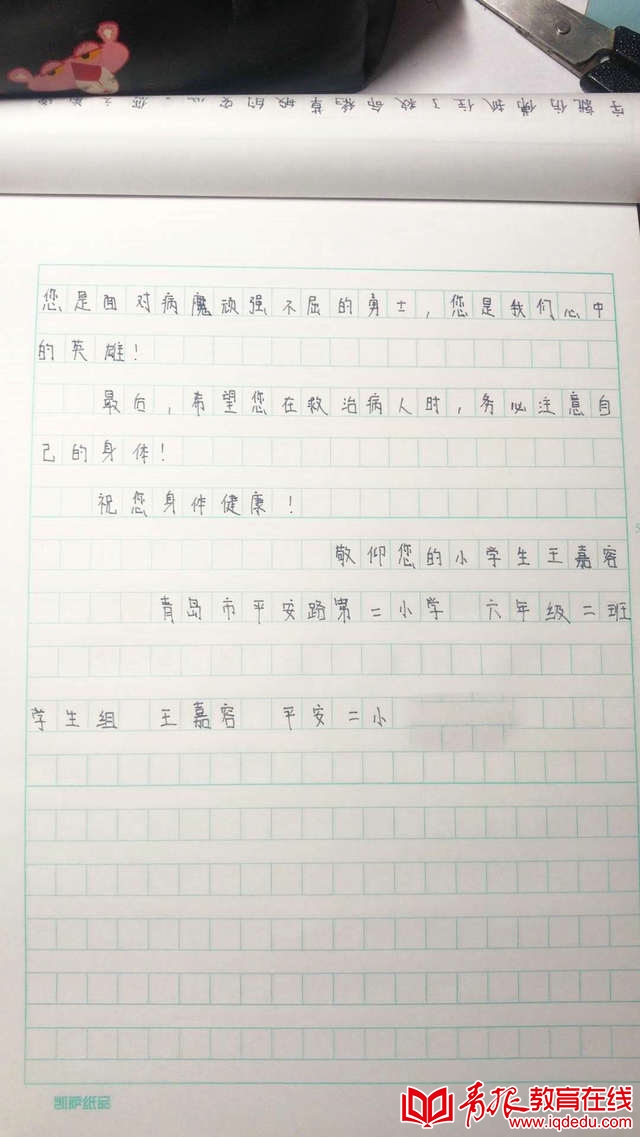 您是面对病魔顽强不屈的勇士，您是我们心中
的英雄！
最后，希望您在救治病人时，务必注意自
己的身体！
祝您身体健康！
敬仰您的小学生王嘉容
青岛市平安路第二小学 六年级二班
学生组 王嘉容 平安二小
凯萨纸品
青报教育在线
www.iqdedu.com